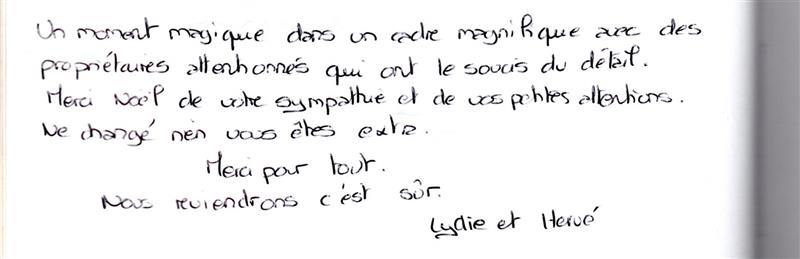 Un moment magique dans un cadre magnifique avec des
propriétaires attentionnés qui ont le soucis du détail.
Merci Noël de votre sympathie et de vos petites attentions.
Ne changé rien vous êtes extra.
Merci pour tout.
Nous reviendrons c'est sûr.
Lydie et Hervé